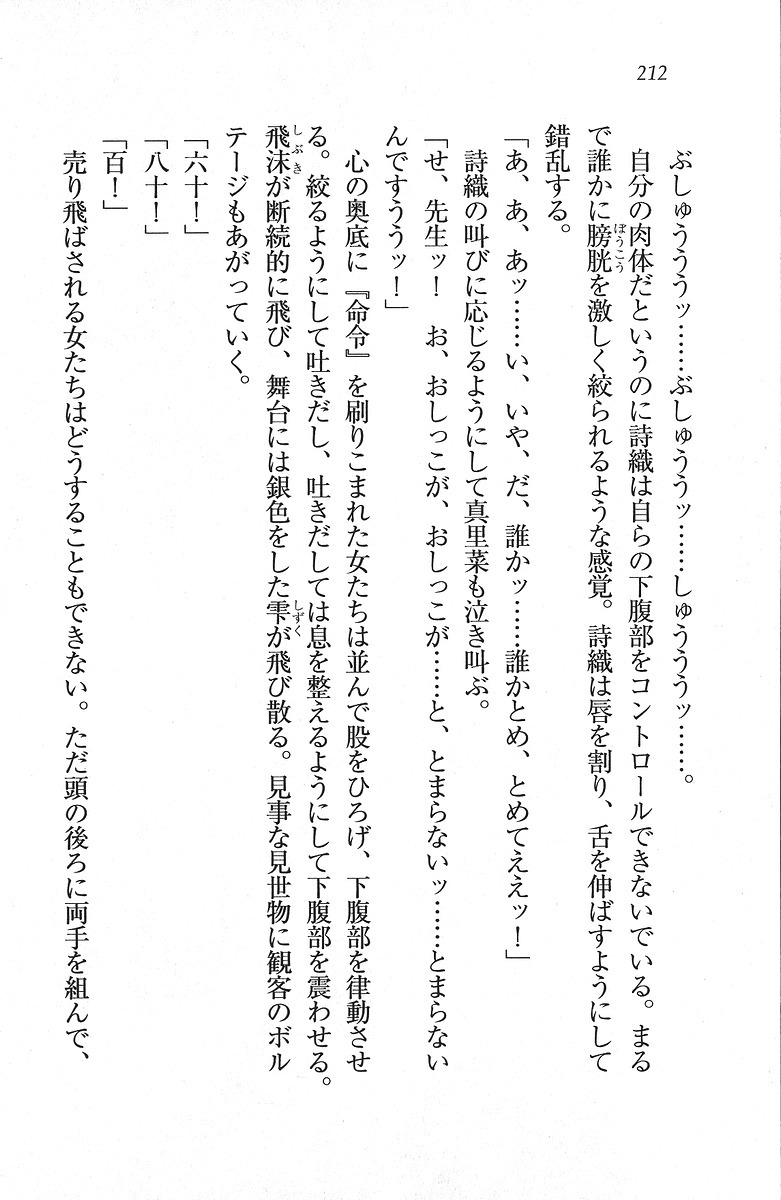 212
ぶしゅうううッ……ぶしゅううッ……しゅうううッ……。
自分の肉体だというのに詩織は自らの下腹部をコントロールできないでいる。まる
で誰かに膀胱を激しく絞られるような感覚。詩織は唇を割り、舌を伸ばすようにして
錯乱する。
「あ、あ、あッ……い、いや、だ、誰かッ……誰かとめ、とめてええッ！」
詩織の叫びに応じるようにして真里菜も泣き叫ぶ。
「せ、先生ッ！　お、おしっこが、おしっこが……と、とまらないッ……とまらない
んですううッ！」
心の奥底に『命令』を刷りこまれた女たちは並んで股をひろげ、下腹部を律動させ
る。絞るようにして吐きだし、吐きだしては息を整えるようにして下腹部を震わせる。
飛沫が断続的に飛び、舞台には銀色をした雫が飛び散る。見事な見世物に観客のボル
テージもあがっていく。
「六十！」
「八十！」
「百！」
売り飛ばされる女たちはどうすることもできない。ただ頭の後ろに両手を組んで、